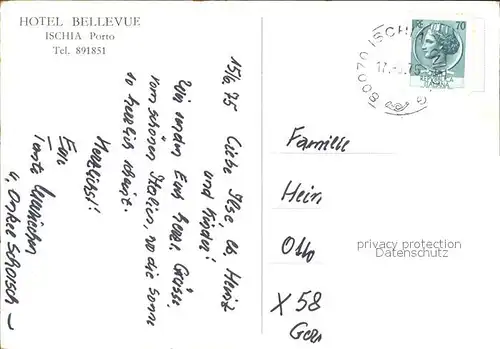 HOTEL BELLEVUE
ISCHIA Porto
Tel. 891851
15/6. 75
Liebe Ilse, lb. Heinz
und Kinder!
Wir senden Euch herzl. Grüsse
vom schönen Italien, wo die Sonne
so herzlich scheint.
Herzlichst!
Eure
Tante
u. Onkel Schorsch
70
80070 ISCHIA
Familie
Hein
Otto
X 58
privacy protection
Datenschutz